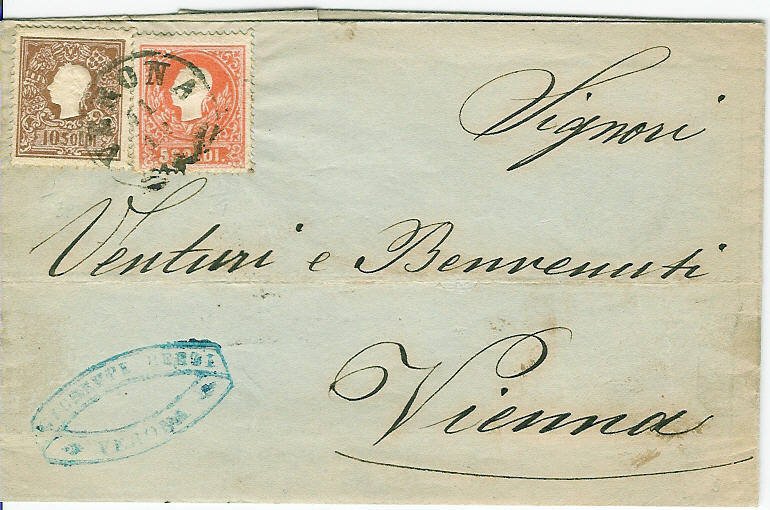 10 SOLDI
5 SOLDI
VERONA
Signori
Venturi e Benvenuti
Vienna
GIUSEPPE
VERONA